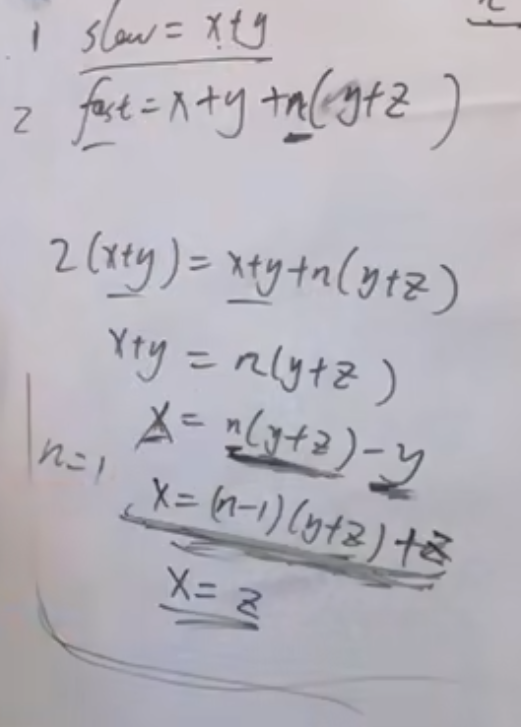 1 slow = x+y
2 fast = x+y+n(y+z)
2(x+y) = x+y+n(y+z)
x+y = n(y+z)
x = n(y+z)-y
n=1
x=(n-1)(y+z)+z
x= z